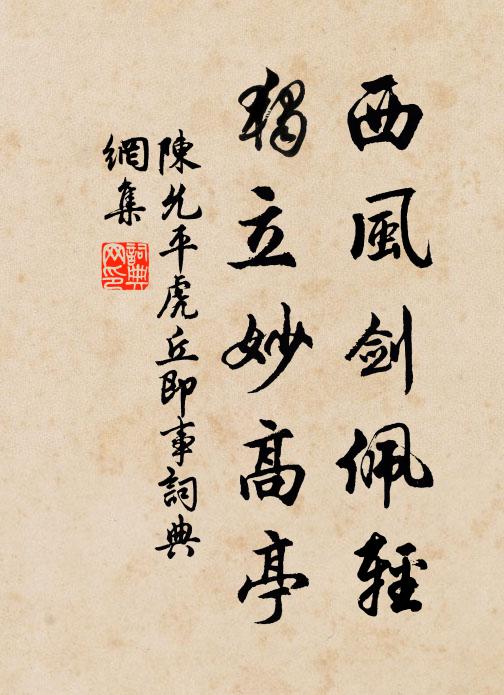 西風剑佩輕
獨立妙高亭
陳允平虎丘即事詞典
網集
詞典
网印